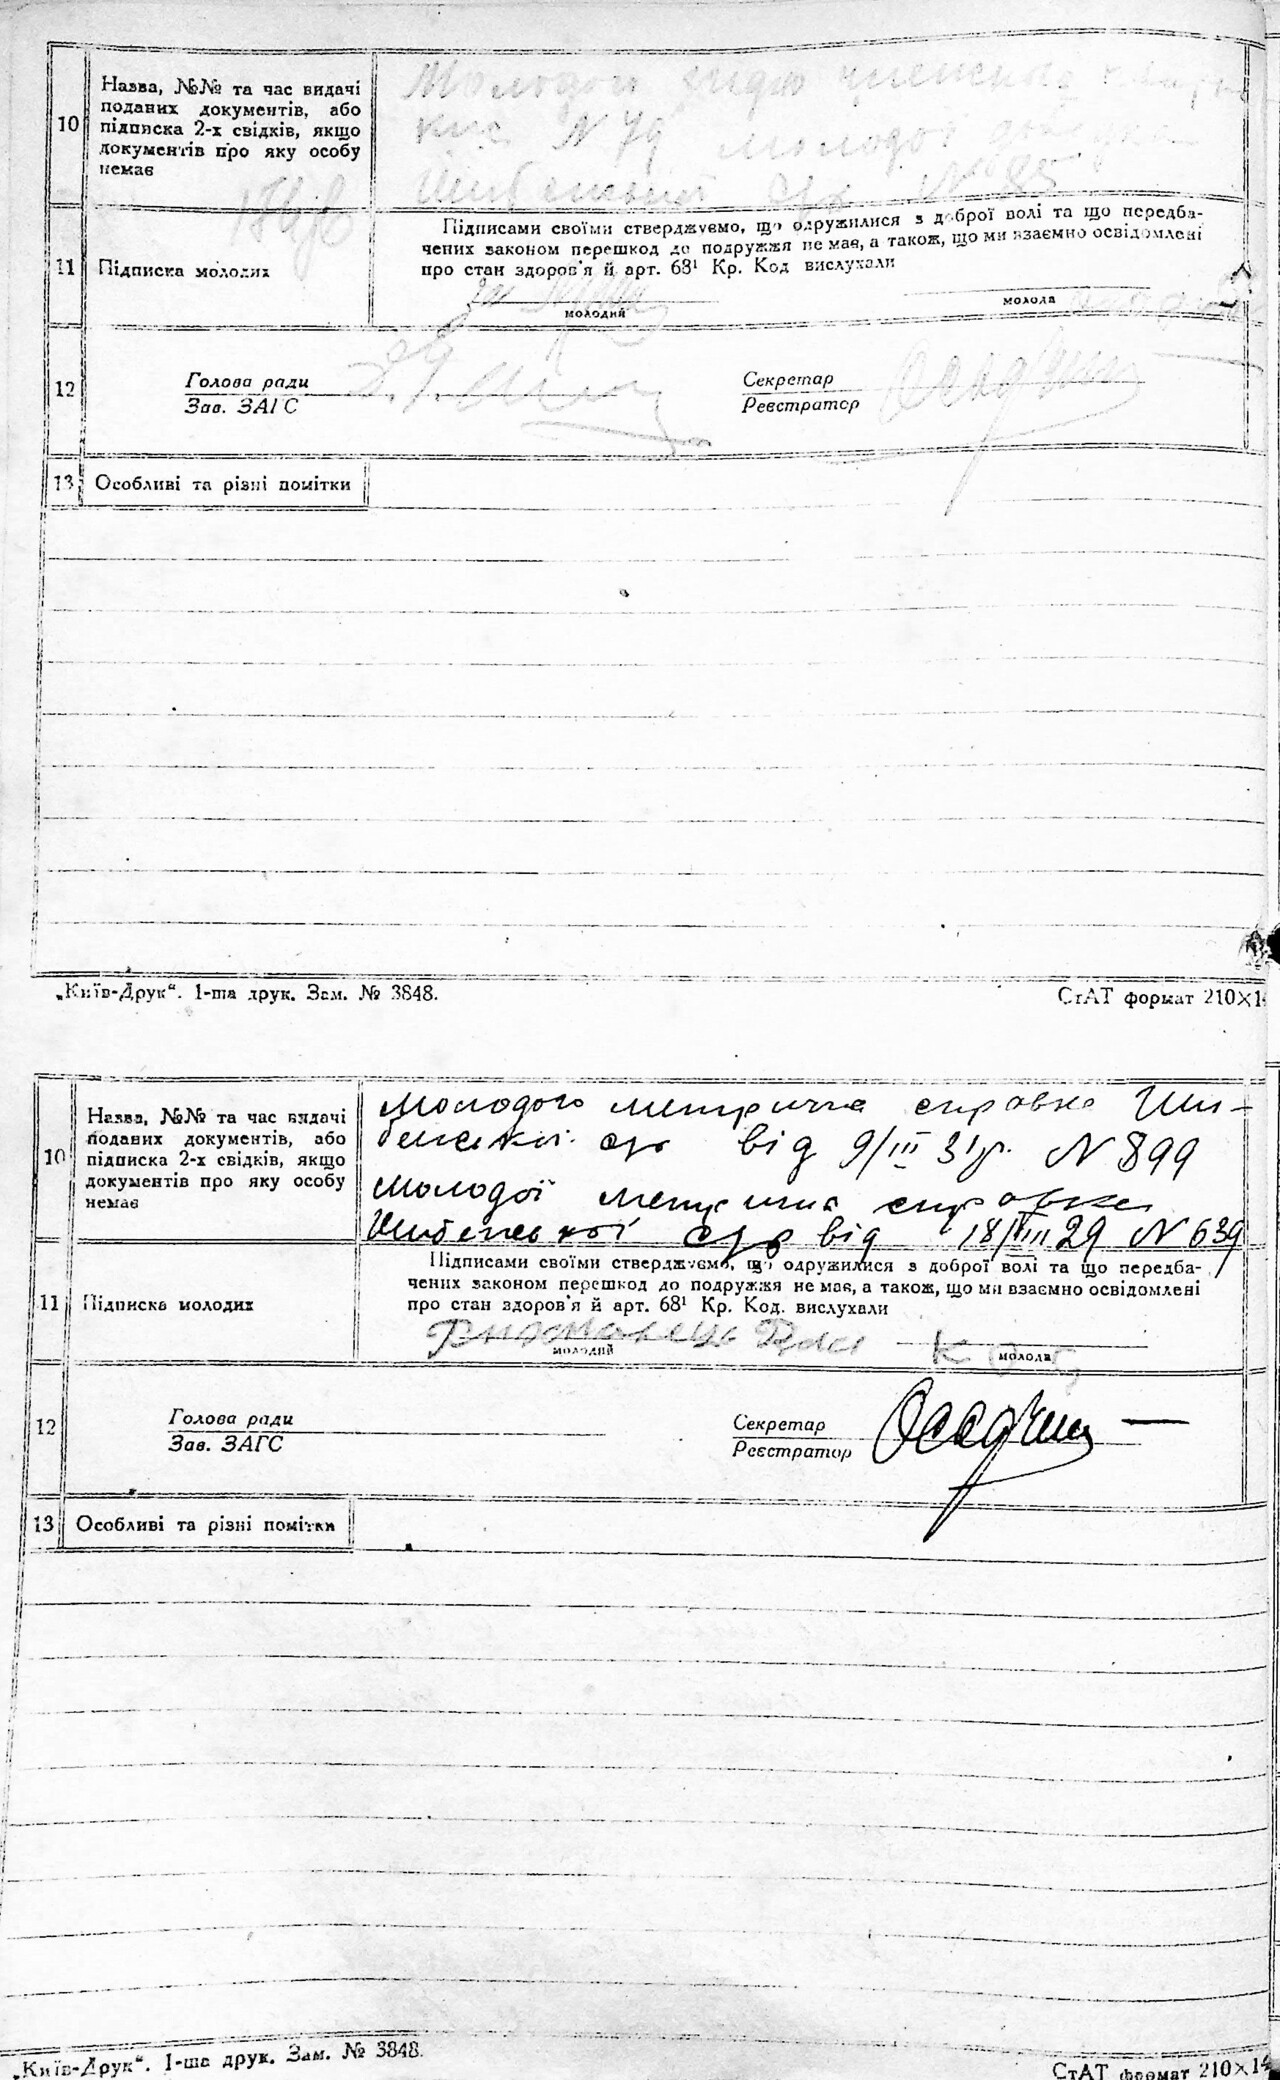 10
Назва, №№ та час видачі
поданих документів, або
підписка 2-х свідків, якщо
документів про яку особу
немає
Молодого
N 79 молодої
N 85
11
Підписка молодих
Підписами своїми стверджуємо, що одружилися з доброї волі та що передба-
чених законом перешкод до подружжя не має, а також, що ми взаємно освідомлені
про стан здоров'я й арт. 68¹ Кр. Код вислухали
молодий
молода
12
Голова ради
Зав. ЗАГС
Секретар
Реєстратор
13
Особливі та різні помітки
„Київ-Друк“. 1-ша друк. Зам. № 3848.
СтАТ формат 210×14
10
Назва, №№ та час видачі
поданих документів, або
підписка 2-х свідків, якщо
документів про яку особу
немає
Молодого метрична справка Ши-
бенської с/р від 9/III 31р. N 899
Молодої метрична справка
Шибенської с/р від 18/VIII 29 N 639
11
Підписка молодих
Підписами своїми стверджуємо, що одружилися з доброї волі та що передба-
чених законом перешкод до подружжя не має, а також, що ми взаємно освідомлені
про стан здоров'я й арт. 68¹ Кр. Код. вислухали
молодий
молода
12
Голова ради
Зав. ЗАГС
Секретар
Реєстратор
13
Особливі та різні помітки
„Київ-Друк“. 1-ша друк. Зам. № 3848.
СтАТ формат 210×14